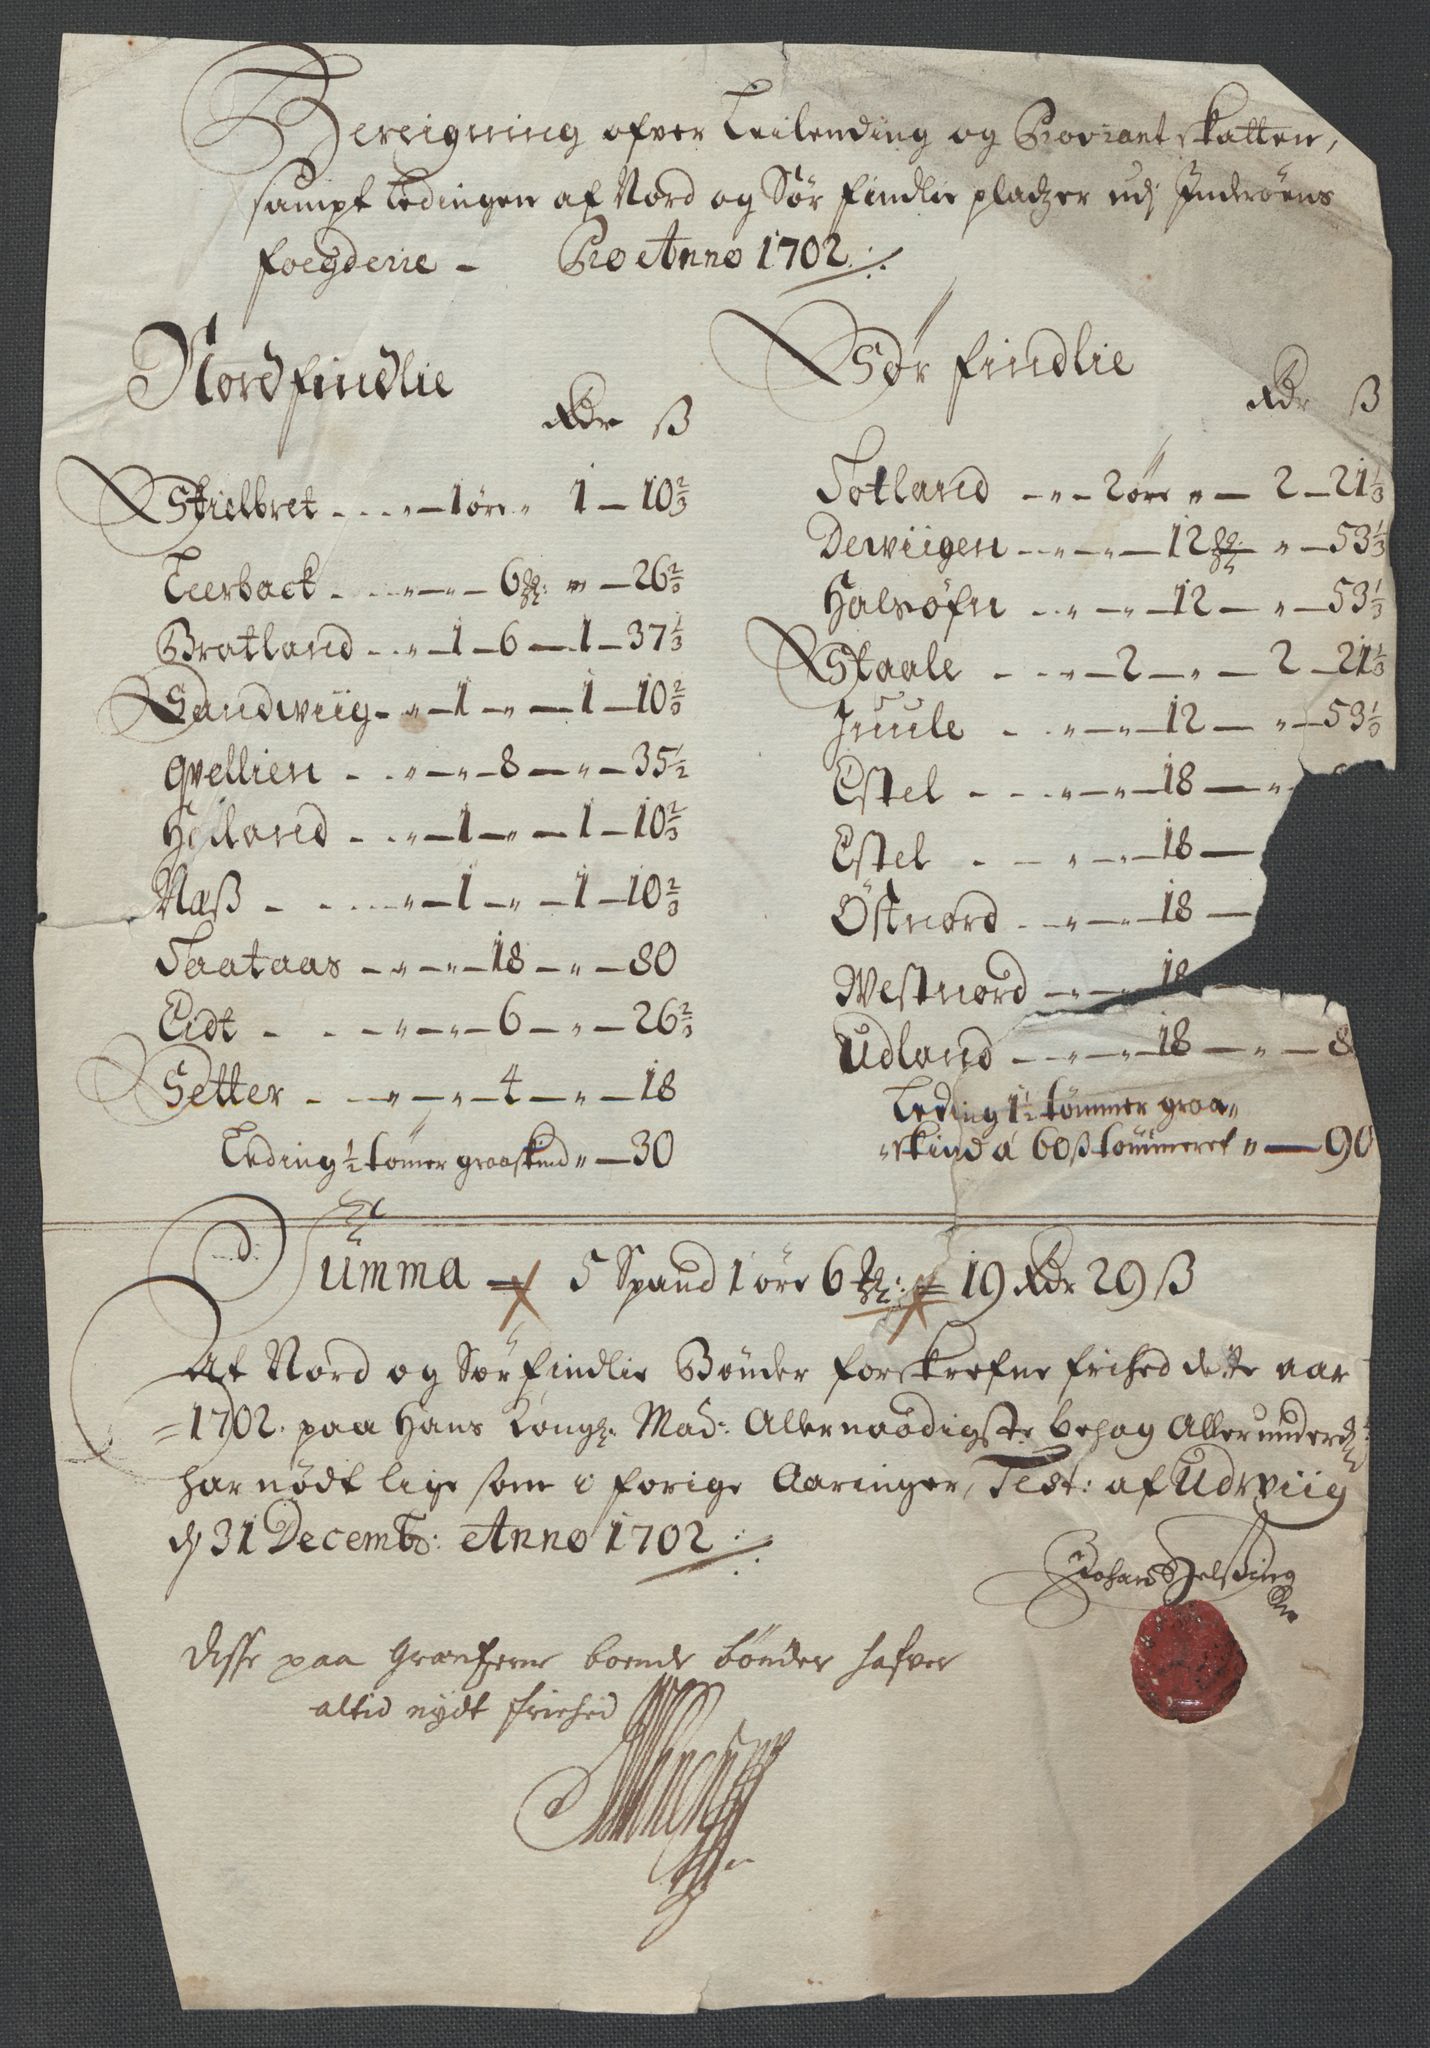 Bereigning ofver Leilending og Proviant skatten,
sampt Ledingen af Nord og Sør findlie pladzer udj Inderöens
foegderie - Pro Anno 1702
Nordfindlie
Rdr ß
Skielbret - 1 öre " 1 - 10 2/3
Leerback - 6 " - 26 2/3
Bratland - 1 - 6 - 1 - 37 1/3
Sandwiig - 1 - " - 1 - 10 2/3
Qvellien - " - 8 - " - 35 1/2
Holland - 1 - " - 1 - 10 2/3
Næß - 1 - " - 1 - 10 2/3
Taataas - " - 18 - " - 80
Eidt - " - 6 - " - 26 2/3
Setter - " - 4 - " - 18
Leding 1/2 tömer graaskind " - 30
Sör findlie
Rdr ß
Totland - " - 2 öre " - 2 - 21 1/3
Derviigen - " - 12 " - 53 1/3
Halsöfn - " - 12 - " - 53 1/3
Staale - 2 - " - 2 - 21 1/3
Juule - " - 12 - " - 53 1/3
Estel - " - 18 - "
Estel - " - 18 -
Östnord - " - 18 -
Westnord - " - 18
Udland - " - 18 - " - 8
Leding 1 1/2 tömmer graa"
"skind á 60 ß tömmeret " - 90
Summa - 5 Spand 1 öre 6 = 19 Rdr 29 ß
At Nord og Sör findlie Bönder forskrefne frihed dette aar
=1702. paa Hans Kongl. May: Allernaadigste behag Allerunderd:
har nödt lige som i forige Aaringer, Test: af Udwiig
dj 31 Decemb: Anno 1702
Johan Helsing
Disse paa Grænserne boende bönder hafver
altid nydt friehed